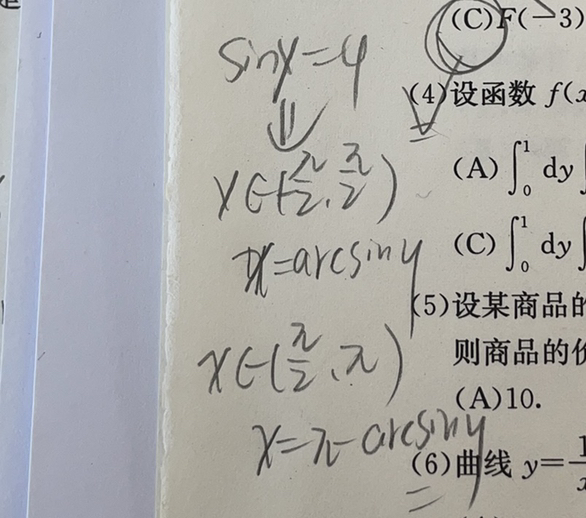 sinx=y
⇓
x∈(-π/2,π/2)
x=arcsiny
x∈(π/2,π)
x=π-arcsiny
(C)F(-3)
(4)设函数 f(x
(A)∫₀¹dy∫
(C)∫₀¹dy∫
(5)设某商品的
则商品的价
(A)10.
(6)曲线 y=1